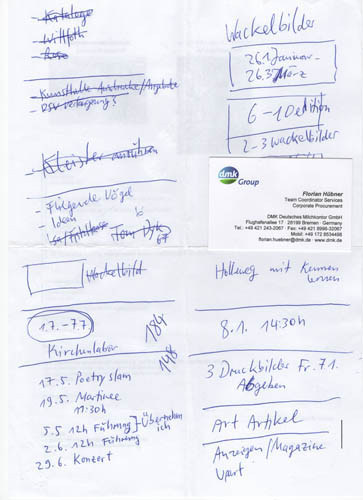 - Kataloge
- Wilfoth
- Rose
- Kunsthalle Ausdrucke/Angebote
- DSV
- Kleister anrühren
- Fliegende Vögel
- Ideen
Tom Dyk
67
Hackelbild
1.7. – 7.7
Kirchenlabor
184
148
17.5. Poetryslam
19.5. Martinee
11:30h
5.5 12h Führung } Übernehm
2.6. 12h Führung } ich
29.6. Konzert
Wackelbilder
26.1 Januar -
26.3 März
6 - 10 edition
2-3 Wackelbilder
dmk
Group
Florian Hübner
Team Coordinator Services
Corporate Procurement
DMK Deutsches Milchkontor GmbH
Flughafenallee 17 · 28199 Bremen · Germany
Tel.: +49 421 243-2067 · Fax: +49 421 8996-32067
Mobil: +49 172 8534498
florian.huebner@dmk.de · www.dmk.de
Hollweg mit Kennen
lernen
8.1. 14:30h
3 Druckbilder Fr. 7.1.
Abgeben
Art Artikel
Anzeigen/Magazine
Upart